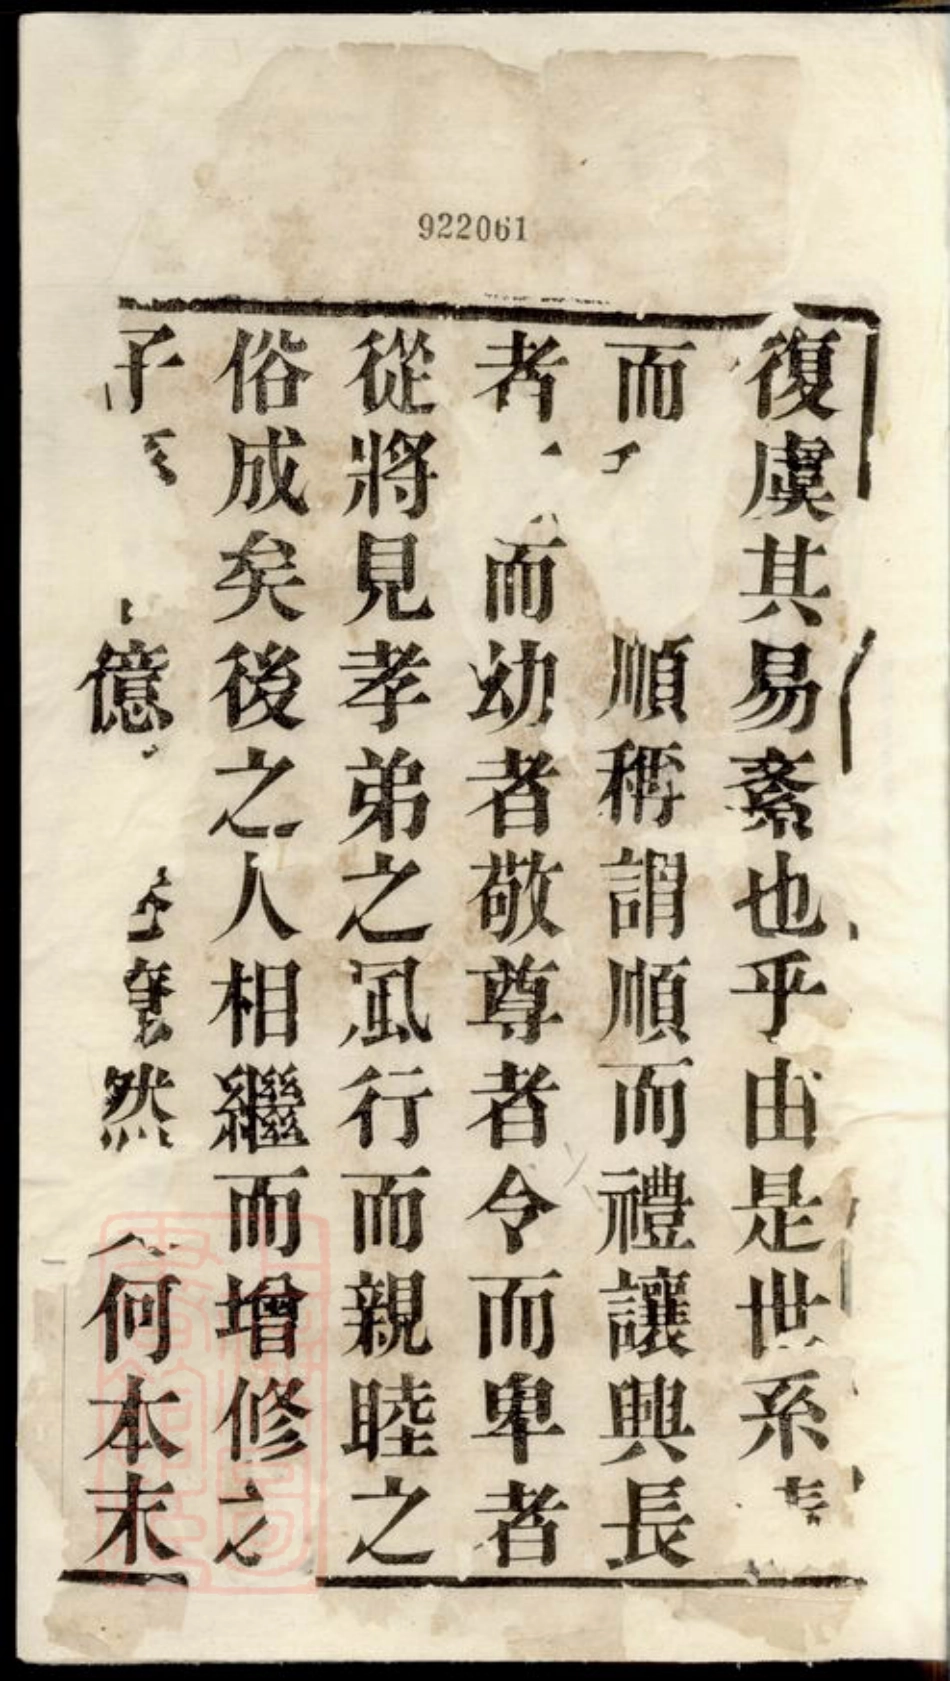 922061
復虞其易紊也乎由是世系
而順稱謂順而禮讓興長
者而幼者敬尊者令而卑者
從將見孝弟之風行而親睦之
俗成矣後之人相繼而增修之
子億然何本末